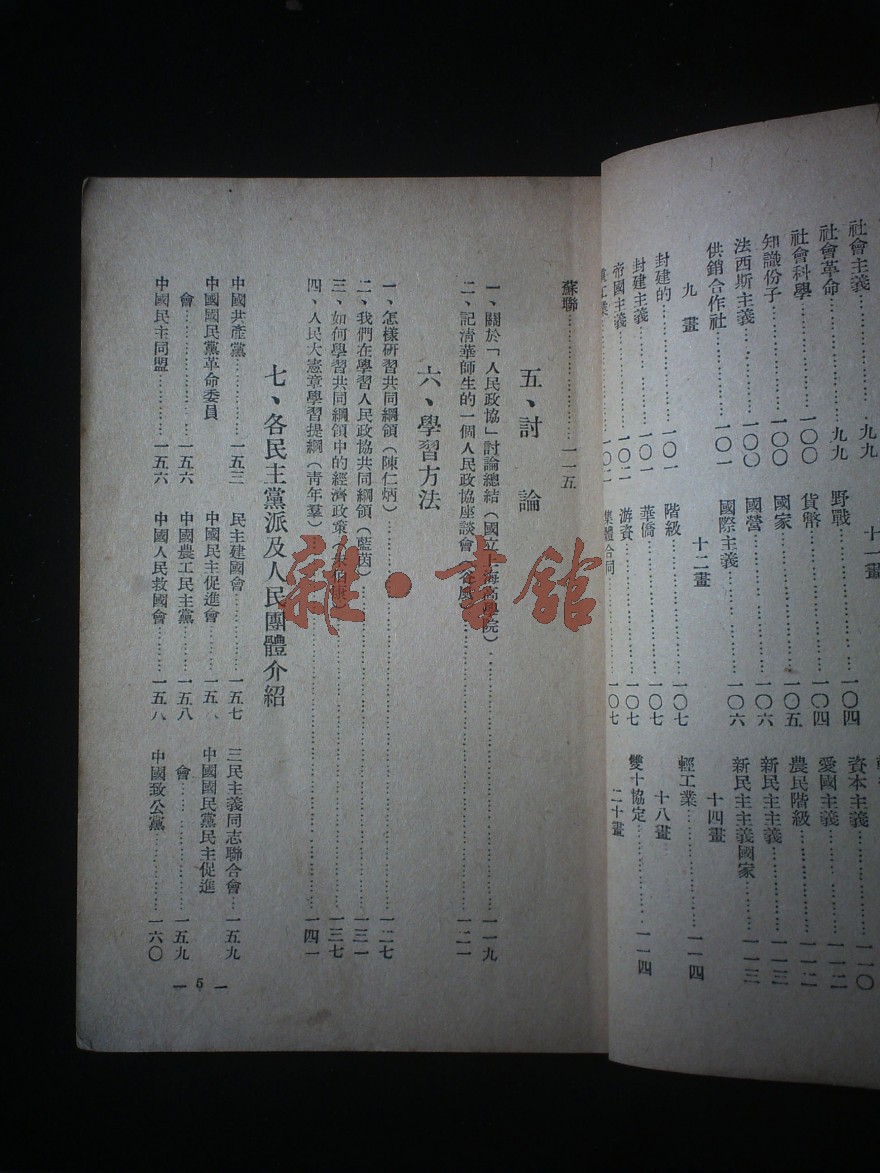 社會主義……九九
社會革命……九九
社會科學……一〇〇
知識份子……一〇〇
法西斯主義……一〇〇
供銷合作社……一〇一
九畫
封建的……一〇一
封建主義……一〇一
帝國主義……一〇二
工業……一〇二
十一畫
野戰……一〇四
貨幣……一〇四
國家……一〇五
國營……一〇六
國際主義……一〇六
十二畫
階級……一〇七
華僑……一〇七
游資……一〇七
集體合同……一〇七
資本主義……一一〇
愛國主義……一一二
農民階級……一一二
新民主主義……一一三
新民主主義國家……一一三
十四畫
輕工業……一一四
十八畫
雙十協定……一一四
二十畫
蘇聯……一一五
五、討論
一、關於「人民政協」討論總結(國立上海商學院)……一一九
二、記清華師生的一個人民政協座談會(谷風)……一二一
六、學習方法
一、怎樣研習共同綱領(陳仁炳)……一二七
二、我們在學習人民政協共同綱領(藍茵)……一三一
三、如何學習共同綱領中的經濟政策(朱伯康)……一三七
四、人民大憲章學習提綱(青年羣)……一四一
七、各民主黨派及人民團體介紹
中國共產黨……一五三
中國國民黨革命委員
會……一五六
中國民主同盟……一五六
民主建國會……一五七
中國民主促進會……一五
中國農工民主黨……一五八
中國人民救國會……一五八
三民主義同志聯合會……一五九
中國國民黨民主促進
會……一五九
中國致公黨……一六〇
— 5 —
雜·書館